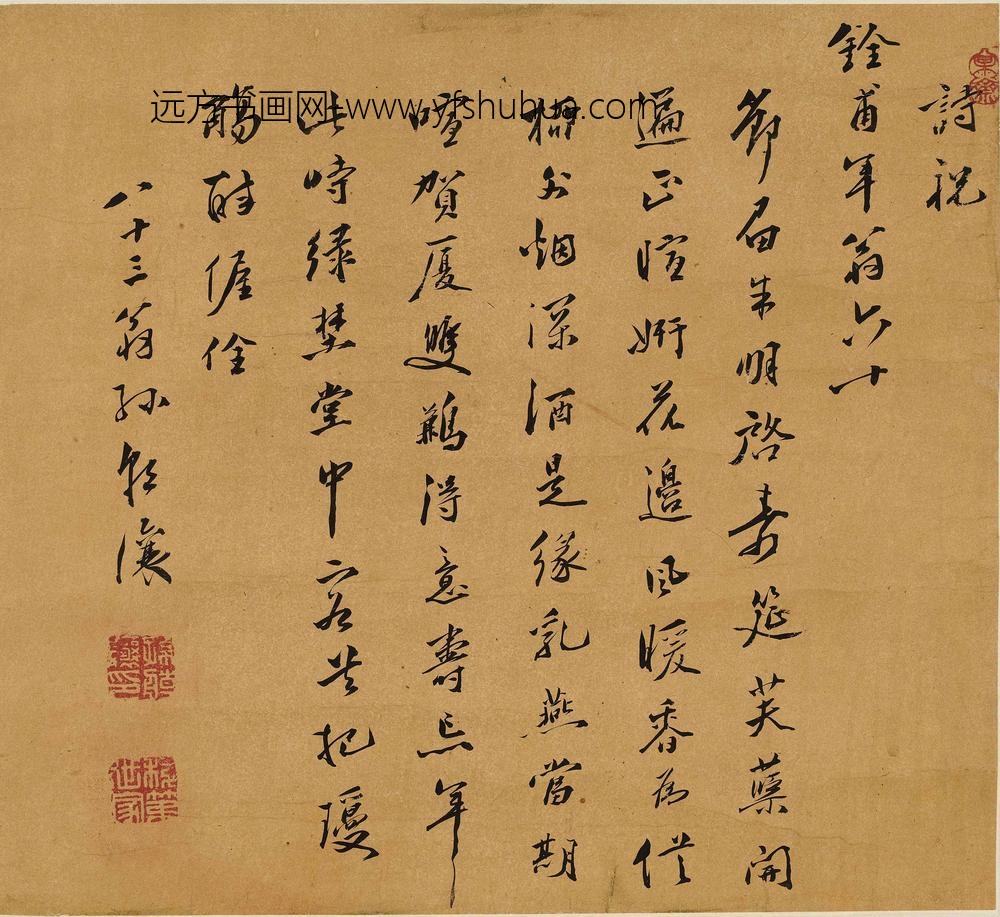 詩祝
銓甫年翁六十
節屆朱明啓壽筵芙蕖開
遍正暄妍花邊風暖香為
柳外烟深酒是緣乳燕當期
喧賀廈雙鵜得意壽忘年
此時綠埜堂中客共把瓊
觴醉偓佺
八十三翁孫
远方书画网:www.yfshuhua.com